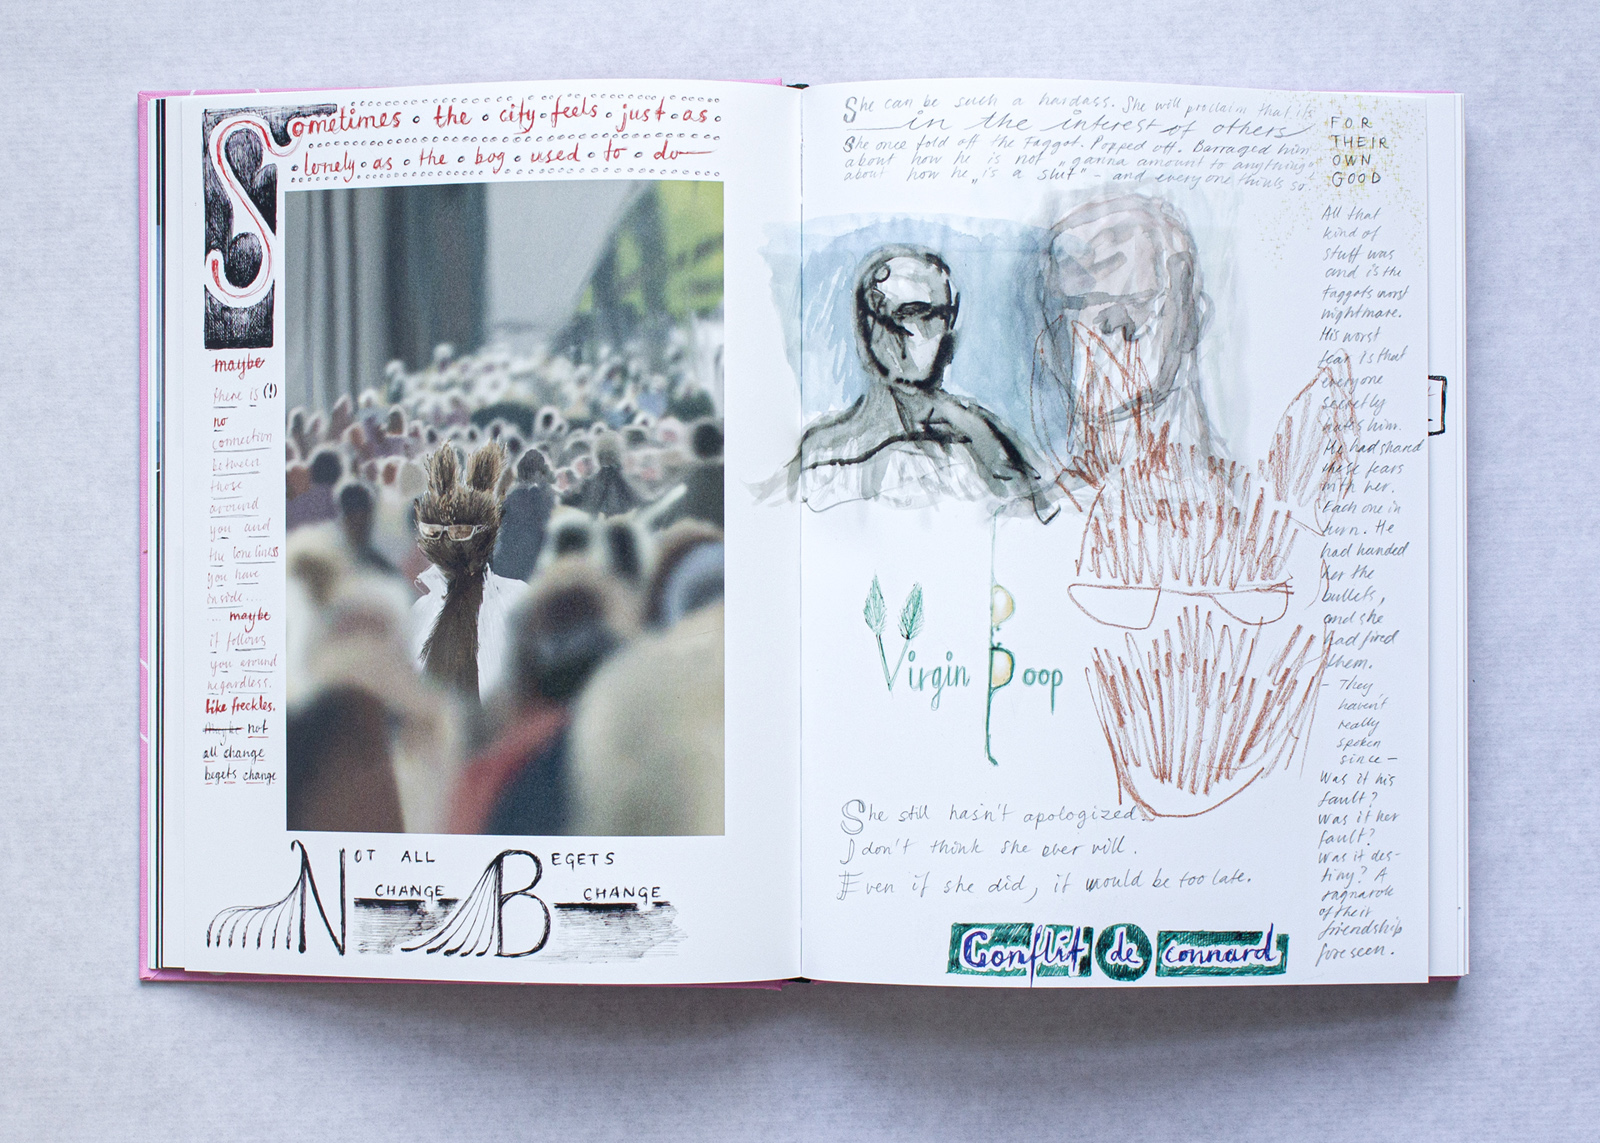 Sometimes the city feels just as
lonely as the bog used to do
maybe
there is (!)
no
connection
between
those
around
you and
the loneliness
you have
inside....
... maybe
it follows
you around
regardless.
like freckles.
Maybe not
all change
begets change
NOT ALL
CHANGE
BEGETS
CHANGE
She can be such a hardass. She will proclaim that its
in the interest of others
She once told off the faggot. Popped off. Barraged him
about how he is not „ganna amount to anything"
about how he „is a slut" – and everyone thinks so.
FOR
THEIR
OWN
GOOD
All that
kind of
stuff was
and is the
faggots worst
nightmare.
His worst
fear is that
everyone
secretly
hates him.
He had shared
these fears
with her.
Each one in
turn. He
had handed
her the
bullets,
and she
had fired
them.
– They
haven't
really
spoken
since –
Was it his
fault?
Was it her
fault?
Was it des-
tiny? A
ragnarok
of their
friendship
foreseen.
Virgin Poop
She still hasn't apologized.
I don't think she ever will.
Even if she did, it would be too late.
Conflit de connard